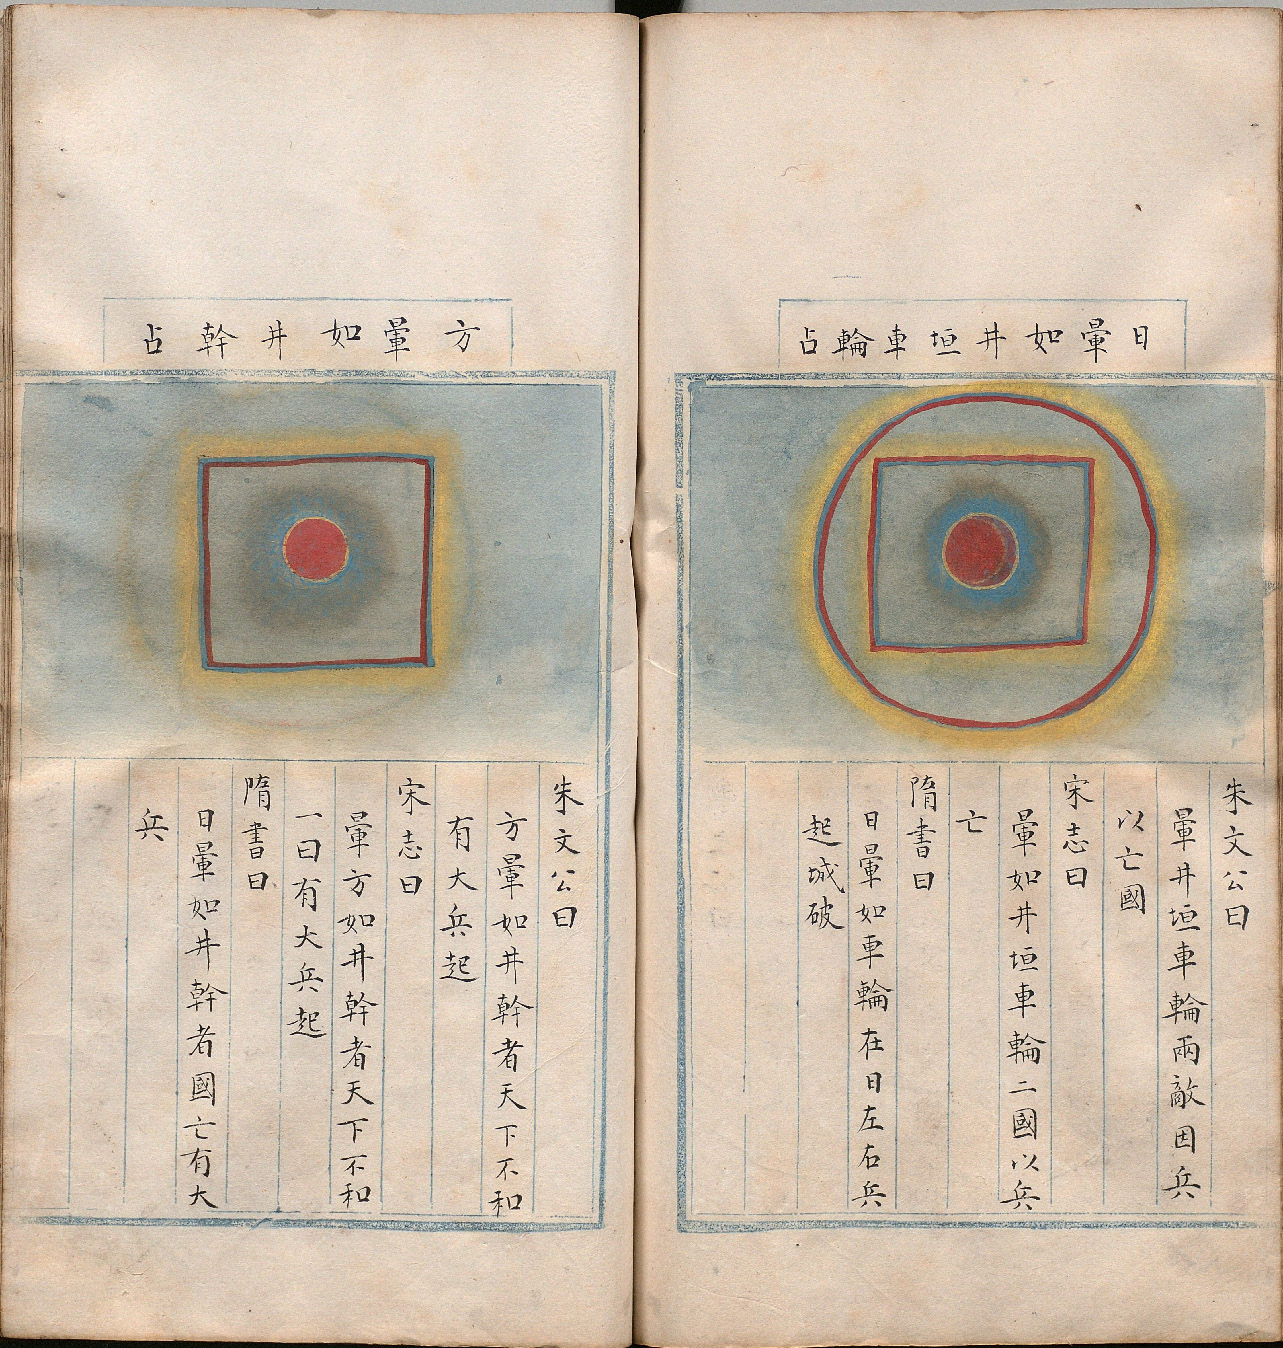 日暈如井垣車輪占
朱文公曰
暈井垣車輪兩敵因兵
以亡國
宋志曰
暈如井垣車輪二國以兵
亡
隋書曰
日暈如車輪在日左右兵
起城破
方暈如井幹占
朱文公曰
方暈如井幹者天下不和
有大兵起
宋志曰
暈方如井幹者天下不和
一曰有大兵起
隋書曰
日暈如井幹者國亡有大
兵